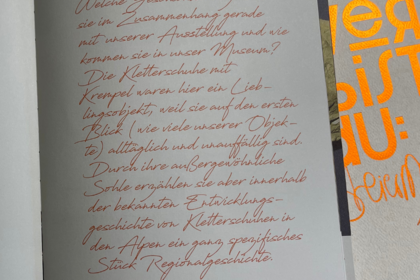 Welche
sie im Zusammenhang gerade
mit unserer Ausstellung und wie
kommen sie in unser Museum?
Die Kletterschuhe mit
Krempel waren hier ein Lieb-
lingsobjekt, weil sie auf den ersten
Blick (wie viele unserer Objek-
te) alltäglich und unauffällig sind.
Durch ihre außergewöhnliche
Sohle erzählen sie aber innerhalb
der bekannten Entwicklungs-
geschichte von Kletterschuhen in
den Alpen ein ganz spezifisches
Stück Regionalgeschichte.